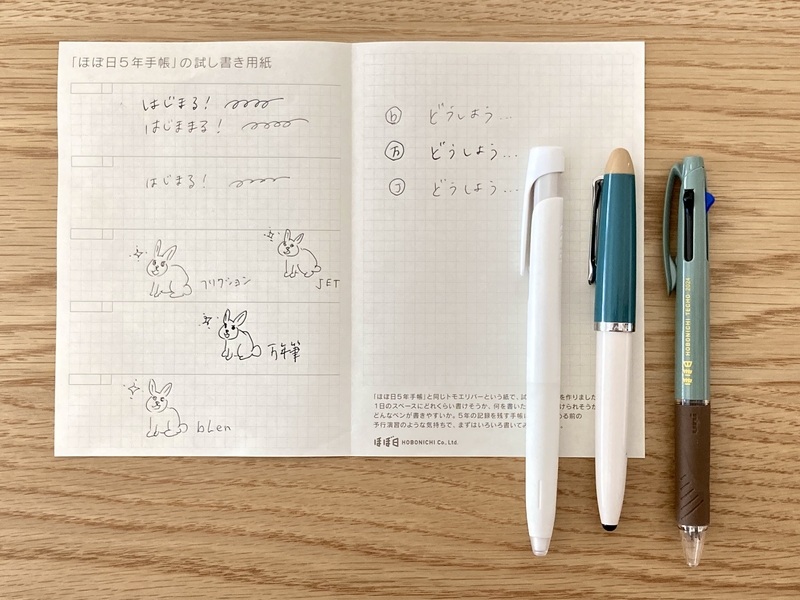 「ほぼ日5年手帳」の試し書き用紙
はじまる!
はじままる!
はじまる!
フリクション
JET
万年筆
bLen
b どうしよう…
万 どうしよう…
J どうしよう…
「ほぼ日5年手帳」と同じトモエリバーという紙で、試 を作りました
1日のスペースにどれくらい書けそうか、何を書いた けられそうか
どんなペンが書きやすいか。5年の記録を残す手帳 める前の
予行演習のような気持ちで、まずはいろいろ書いて
ほぼ日 HOBONICHI Co., Ltd.
ほぼ日 HOBONICHI TECHO 2024